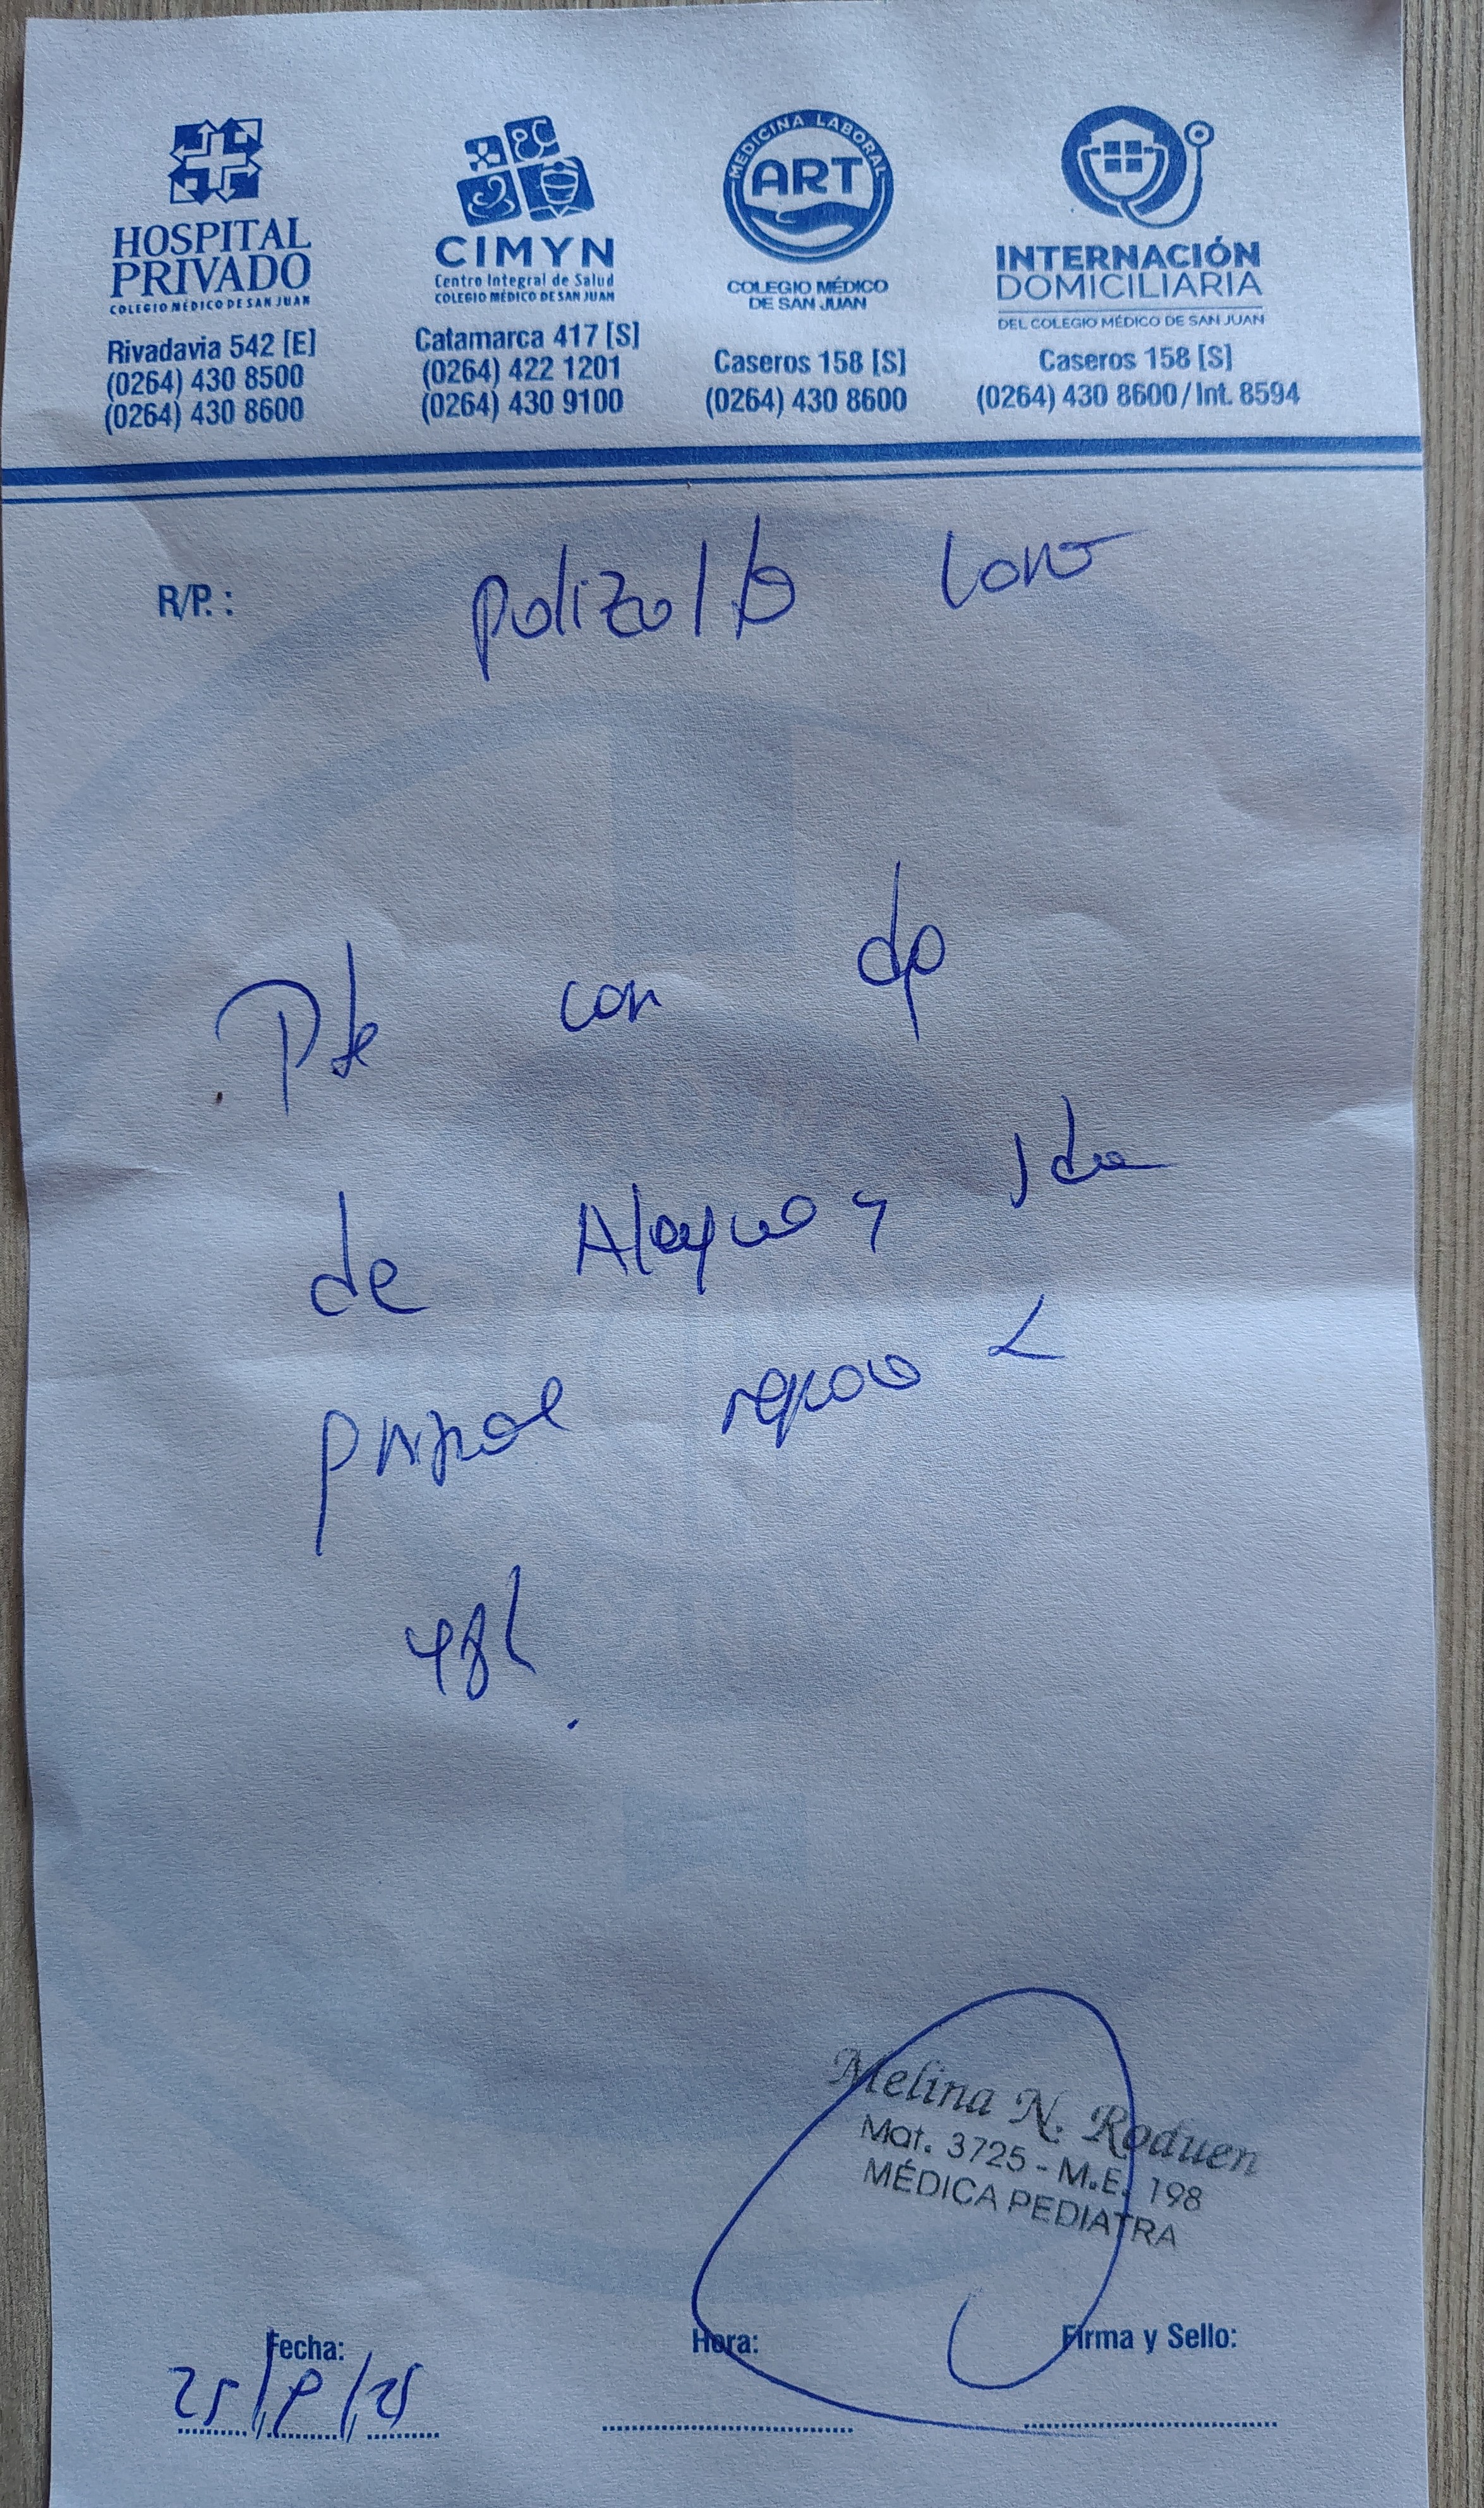 HOSPITAL
PRIVADO
COLEGIO MÉDICO DE SAN JUAN
Rivadavia 542 [E]
(0264) 430 8500
(0264) 430 8600
CIMYN
Centro Integral de Salud
COLEGIO MÉDICO DE SAN JUAN
Catamarca 417 [S]
(0264) 422 1201
(0264) 430 9100
MEDICINA LABORAL
ART
COLEGIO MÉDICO
DE SAN JUAN
Caseros 158 [S]
(0264) 430 8600
INTERNACIÓN
DOMICILIARIA
DEL COLEGIO MÉDICO DE SAN JUAN
Caseros 158 [S]
(0264) 430 8600 / Int. 8594
R/P.:
Pte con
de
reposo
48h
Melina N. Roduen
Mat. 3725 - M.E. 198
MÉDICA PEDIATRA
Fecha:
Hora:
Firma y Sello: